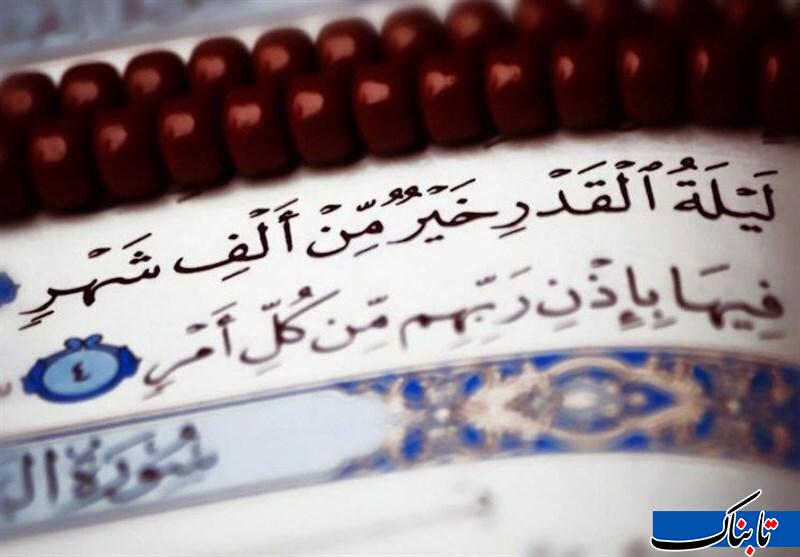 لَيْلَةُ ٱلْقَدْرِ خَيْرٌ مِّنْ أَلْفِ شَهْرٍ
فِيهَا بِإِذْنِ رَبِّهِم مِّن كُلِّ أَمْرٍ ٤
سُورَةُ
تابناک